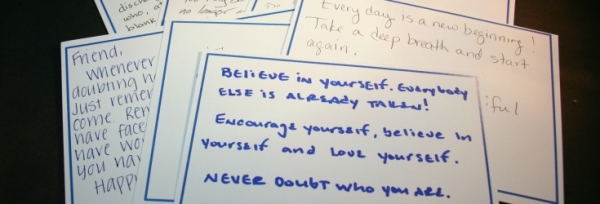 discha
who, a
blank
no longer
Every day is a new beginning!
Take a deep breath and start
again.
iful
Friend,
Whenever
doubting
Just reme
come. Re
have face
have wo
you hav
Happ
BELIEVE IN YOURSELF. EVERYBODY
ELSE IS ALREADY TAKEN!
Encourage yourself, believe in
yourself and love yourself.
NEVER DOUBT WHO YOU ARE.